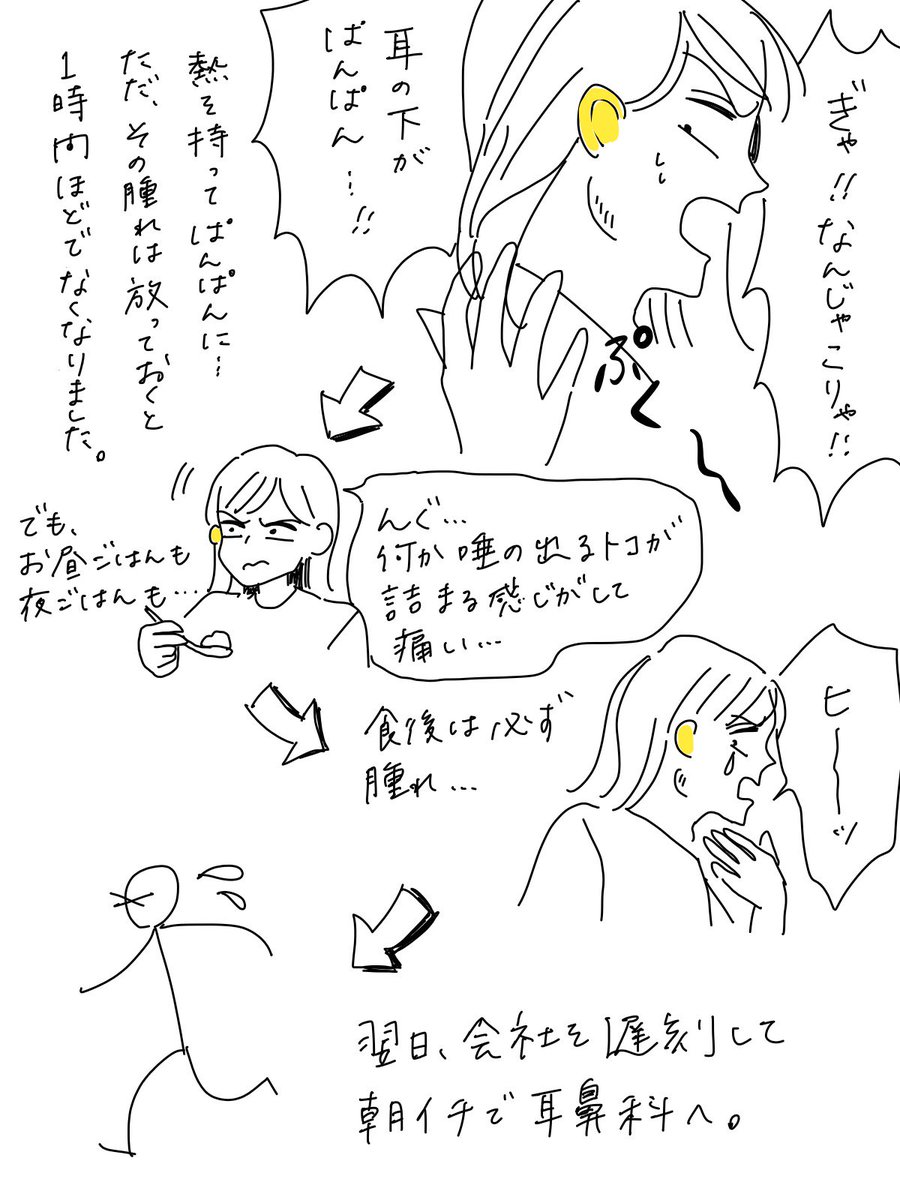 ぎゃ!!なんじゃこりゃ!!
耳の下が
ぱんぱん…!!
ぷく〜
熱を持ってぱんぱんに…
ただ、その腫れは放っておくと
1時間ほどでなくなりました。
でも、
お昼ごはんも
夜ごはんも…
んぐ…
何か唾の出るトコが
詰まる感じがして
痛い…
食後は必ず
腫れ…
ヒーーッ
翌日、会社を遅刻して
朝イチで耳鼻科へ。